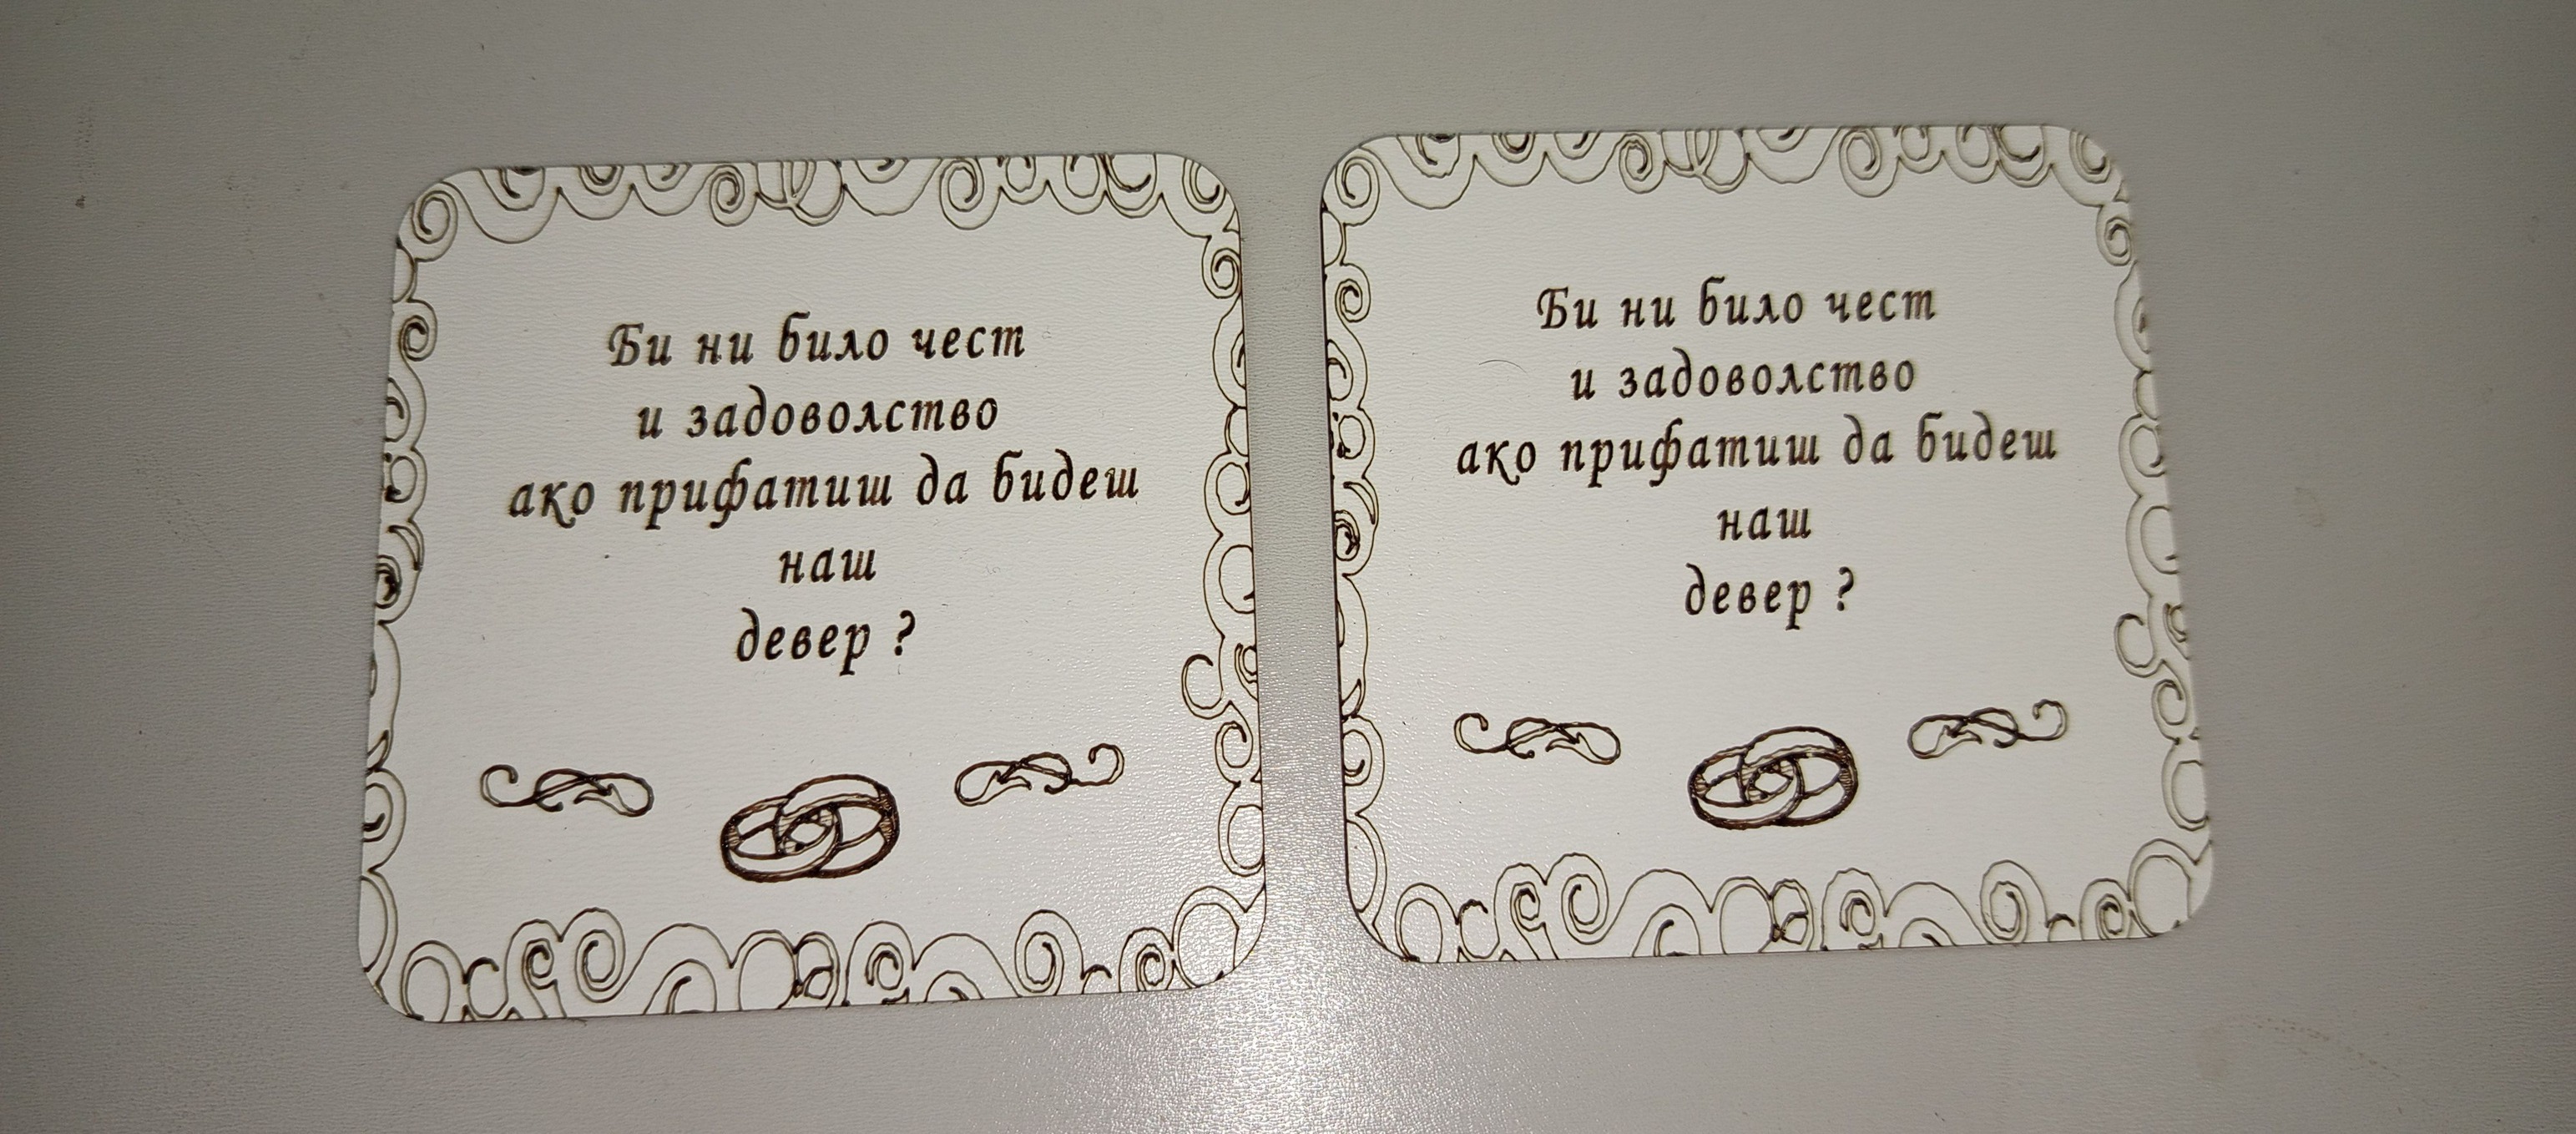 Би ни било чест
и задоволство
ако прифатиш да бидеш
наш
девер ?
Би ни било чест
и задоволство
ако прифатиш да бидеш
наш
девер ?